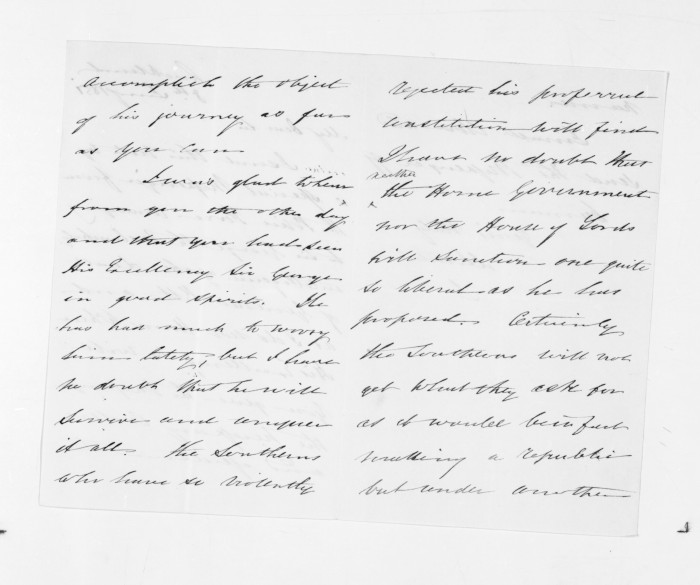 accomplish the object
of his journey as far
as you can
I was glad to hear
from you the other day
and that you had seen
His Excellency Sir George
in good spirits. He
has had much to worry
him lately, but I have
no doubt that he will
survive and conquer
it all. The Southerns
who have so violently
rejected his profferred
constitution will find
I have no doubt that
neither
the Home Government
nor the House of Lords
will sanction one quite
so liberal as he has
proposed. Certainly
the Southerns will not
get what they ask for
as it would be in fact
making a republic
but under another